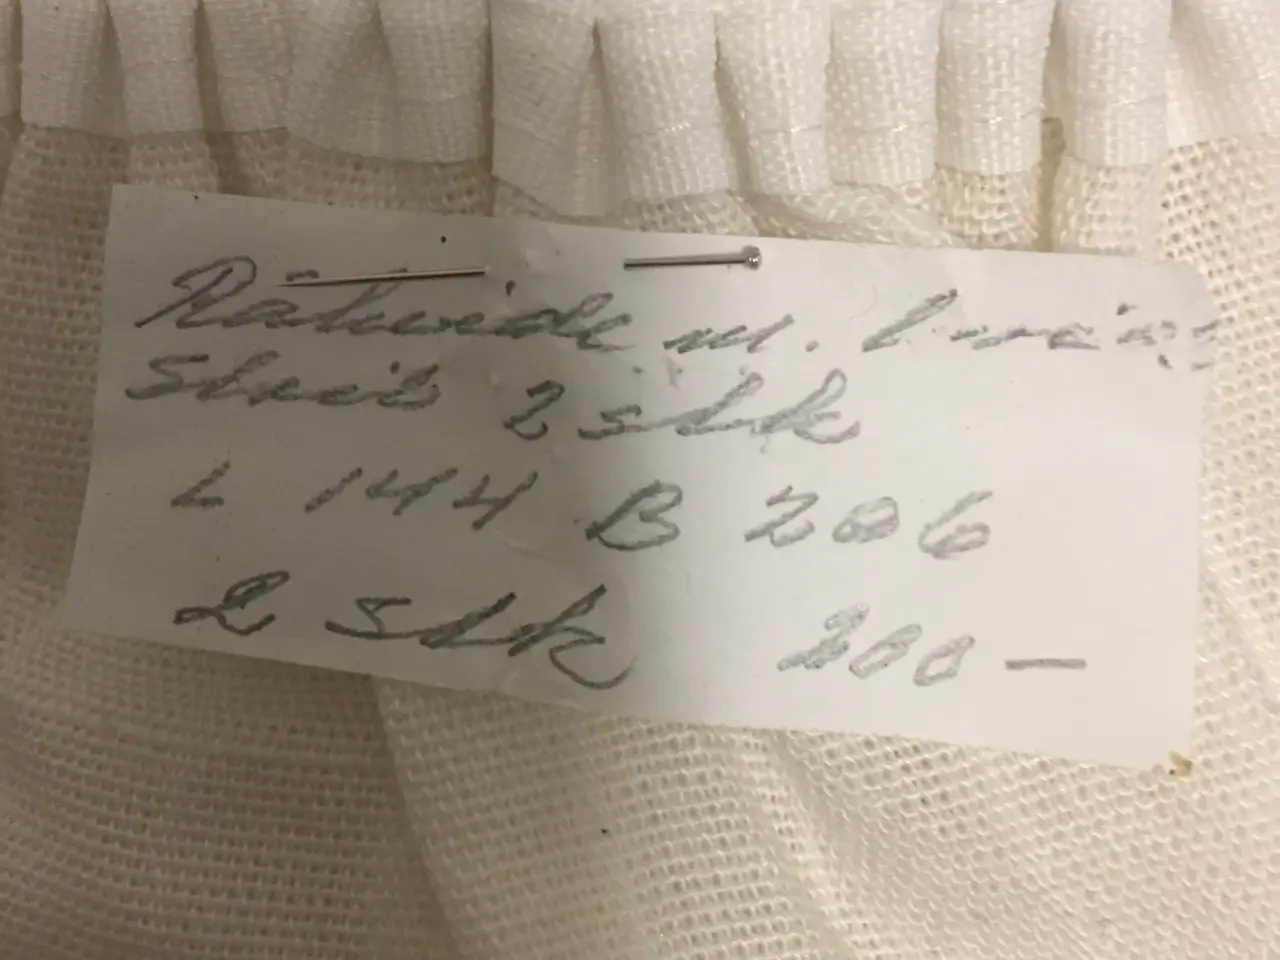 Råhvide m.
2 stk
L 144 B 206
2 stk 200 —